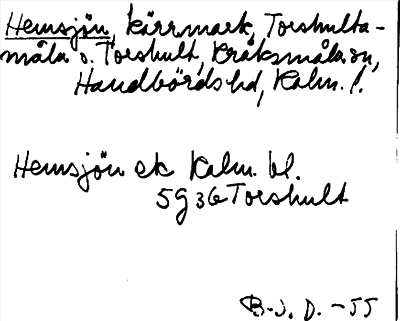 Hemsjön, kärrmark, Torshulta-
måla o. Torshult, Kråksmåla sn,
Handbörds hd, Kalm. l.
Hemsjön ek Kalm. bl.
5g 36 Torshult
B-J. D. -55